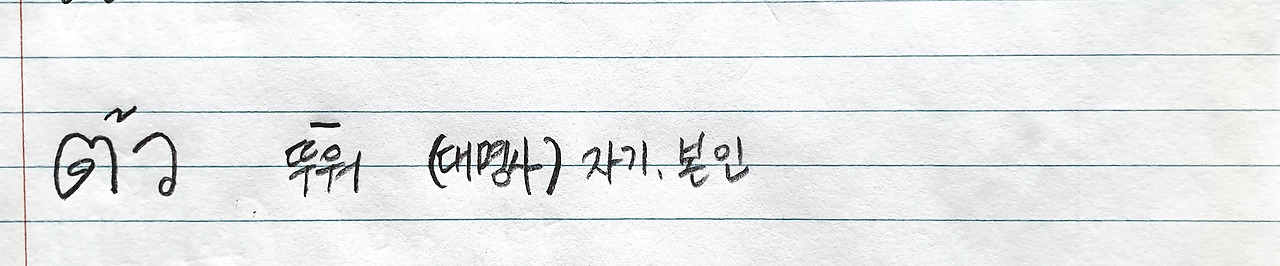 ตัว 뚜워 (대명사) 자기, 본인